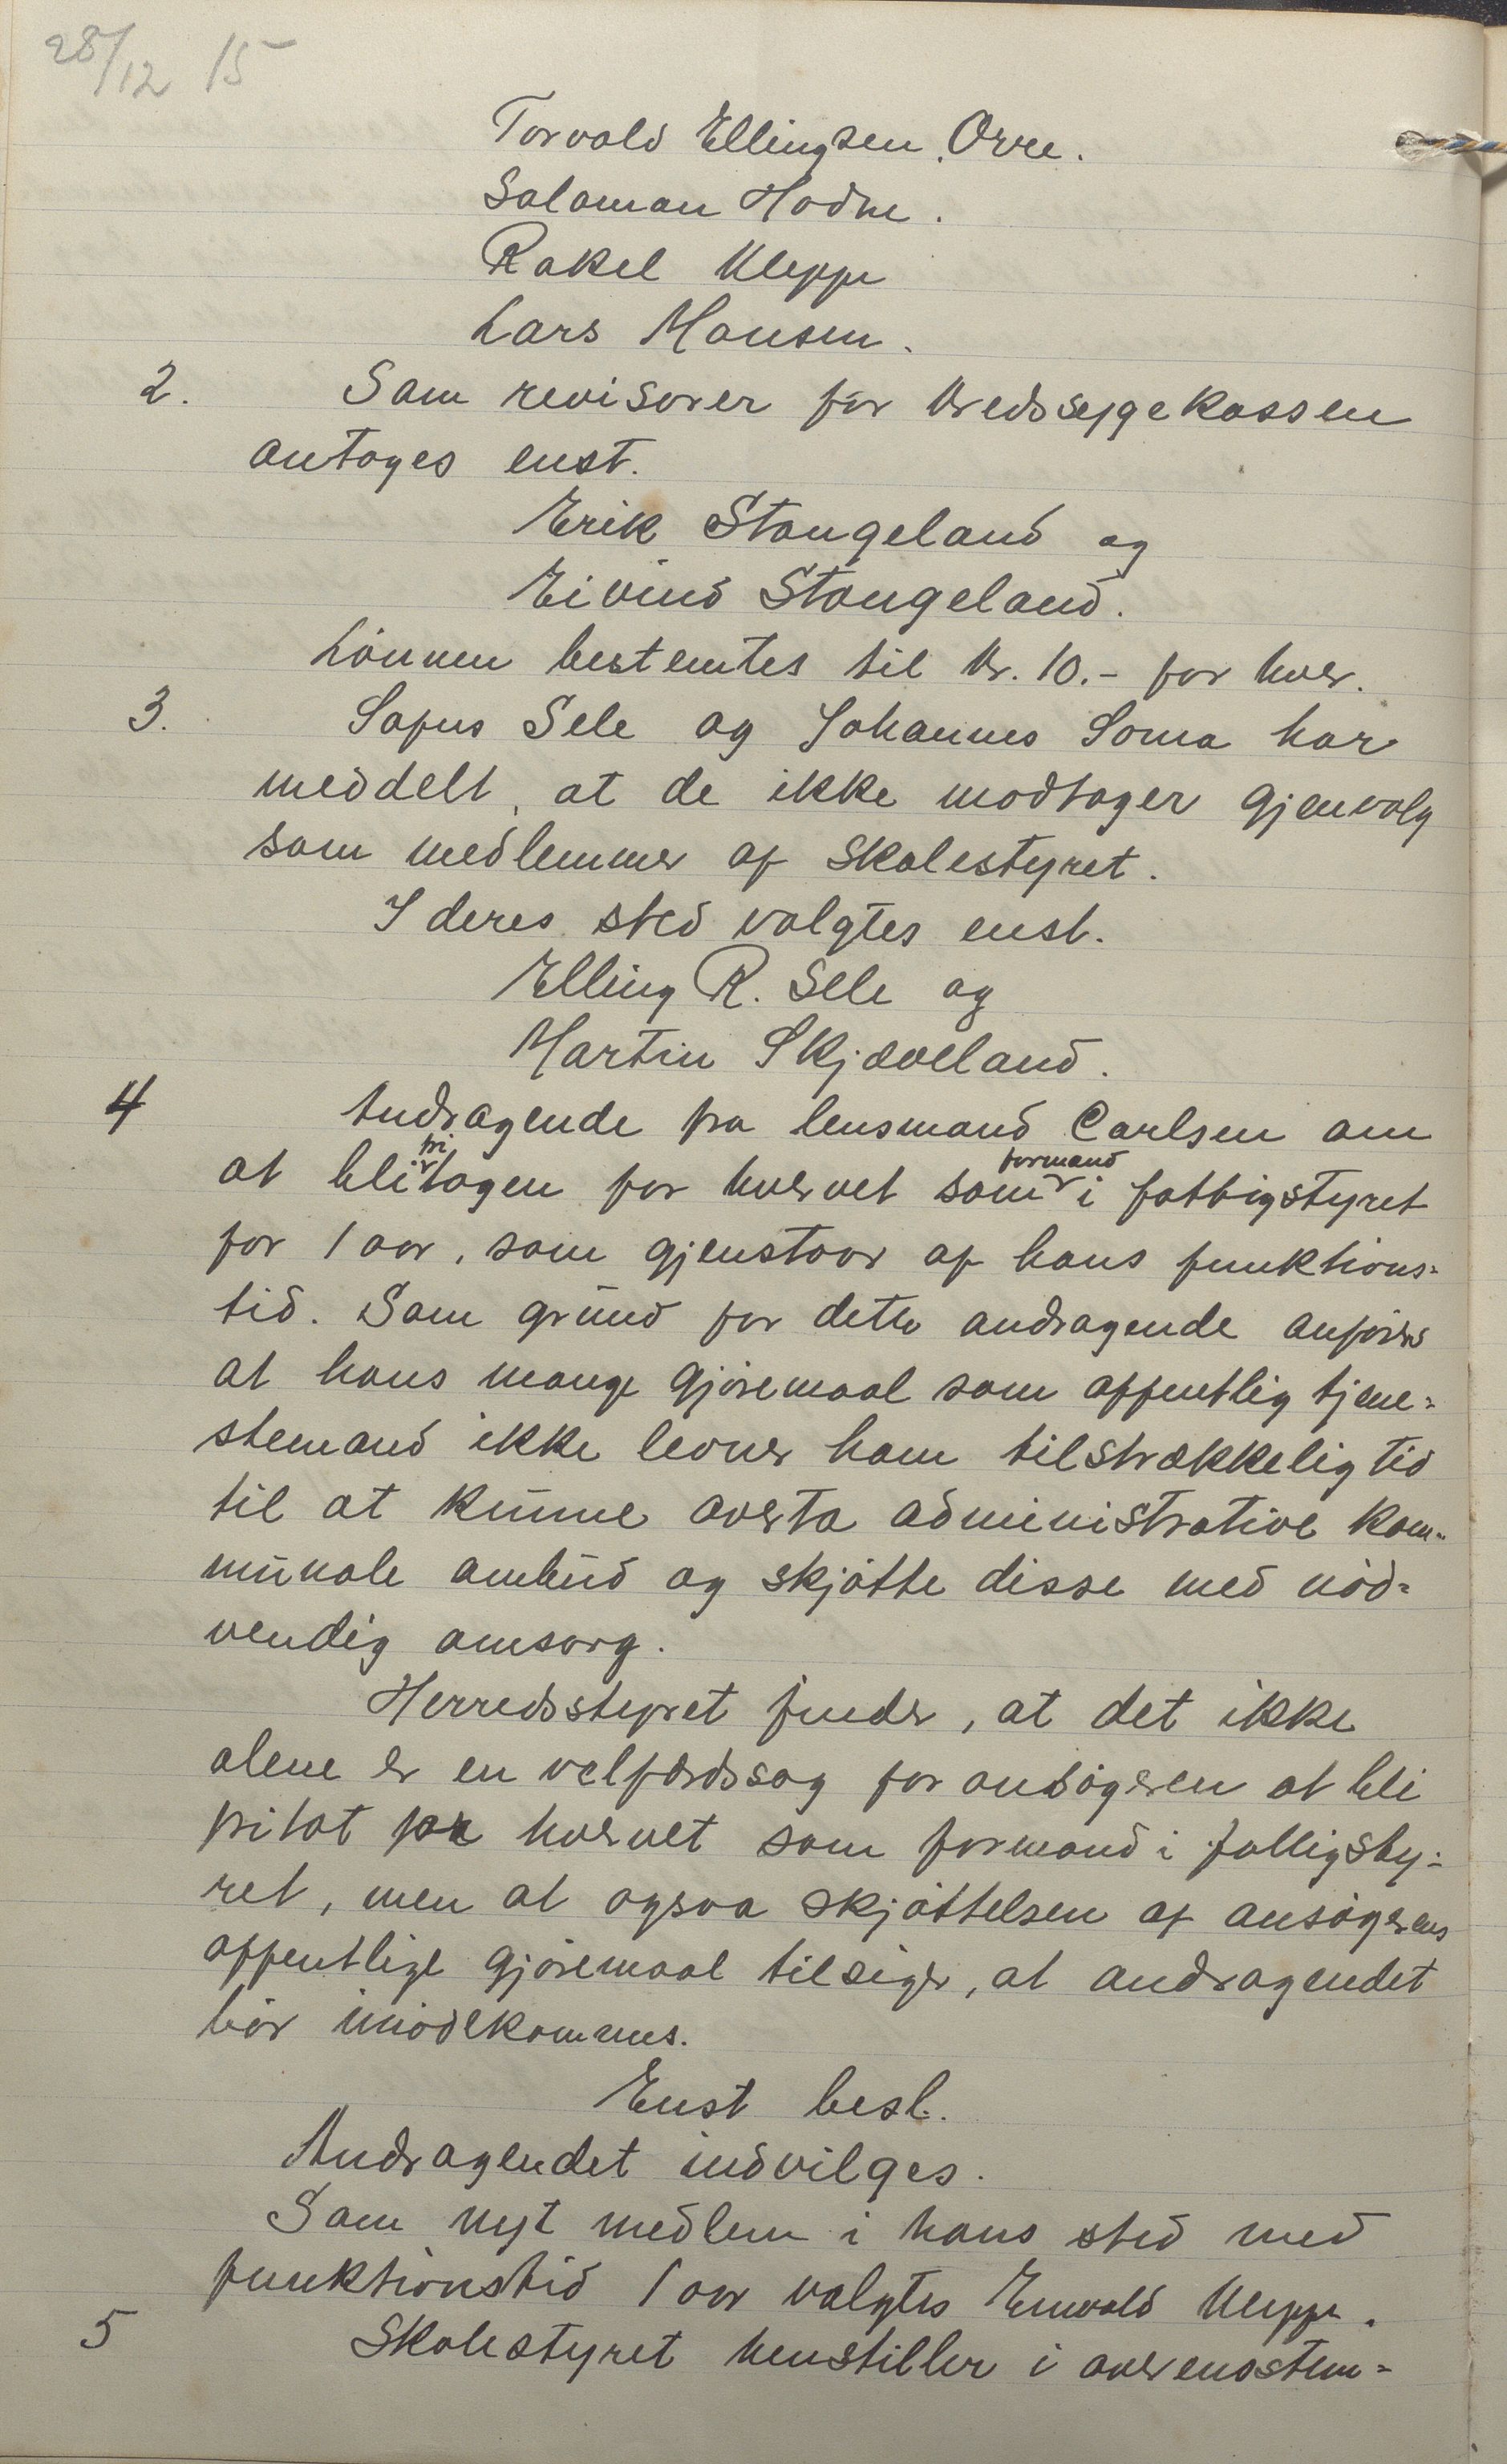 28/12 15
Torvald Ellingsen Orre.
Salomon Hodne.
Rakel Kleppe
Lars Monsen.
2. Som revisorer for Kredssygekassen
antages enst.
Erik Stangeland og
Eivind Stangeland.
Lönnen bestemtes til Kr. 10.- for hver.
3. Sofus Sele og Johannes Soma har
meddelt, at de ikke modtager gjenvalg
som medlemmer af skolestyret.
I deres sted valgtes enst.
Elling R. Sele og
Martin Skjæveland.
4 Andragende fra lensmand Carlsen om
at bli fritagen for hvervet som formand i fattigstyret
for 1 aar, som gjenstaar af hans funktions-
tid. Som grund for dette andragende anføres
at hans mange gjöremaal som offentlig tjene-
stemand ikke levner ham tilstrækkelig tid
til at kunne overta administrative kom-
munale ombud og skjötte disse med nöd-
vendig omsorg.
Herredsstyret finder, at det ikke
alene er en velfærdssag for ansögeren at bli
fritat for hvervet som formand i fattigsty-
ret, men at ogsaa skjöttelsen af ansögerens
offentlige gjöremaal tilsiger, at andragendet
bör imödekommes.
Enst besl.
Andragendet indvilges.
Som nyt medlem i hans sted med
funktionstid 1 aar valgtes Enevald Kleppe.
5 Skolestyret henstiller i overensstem-